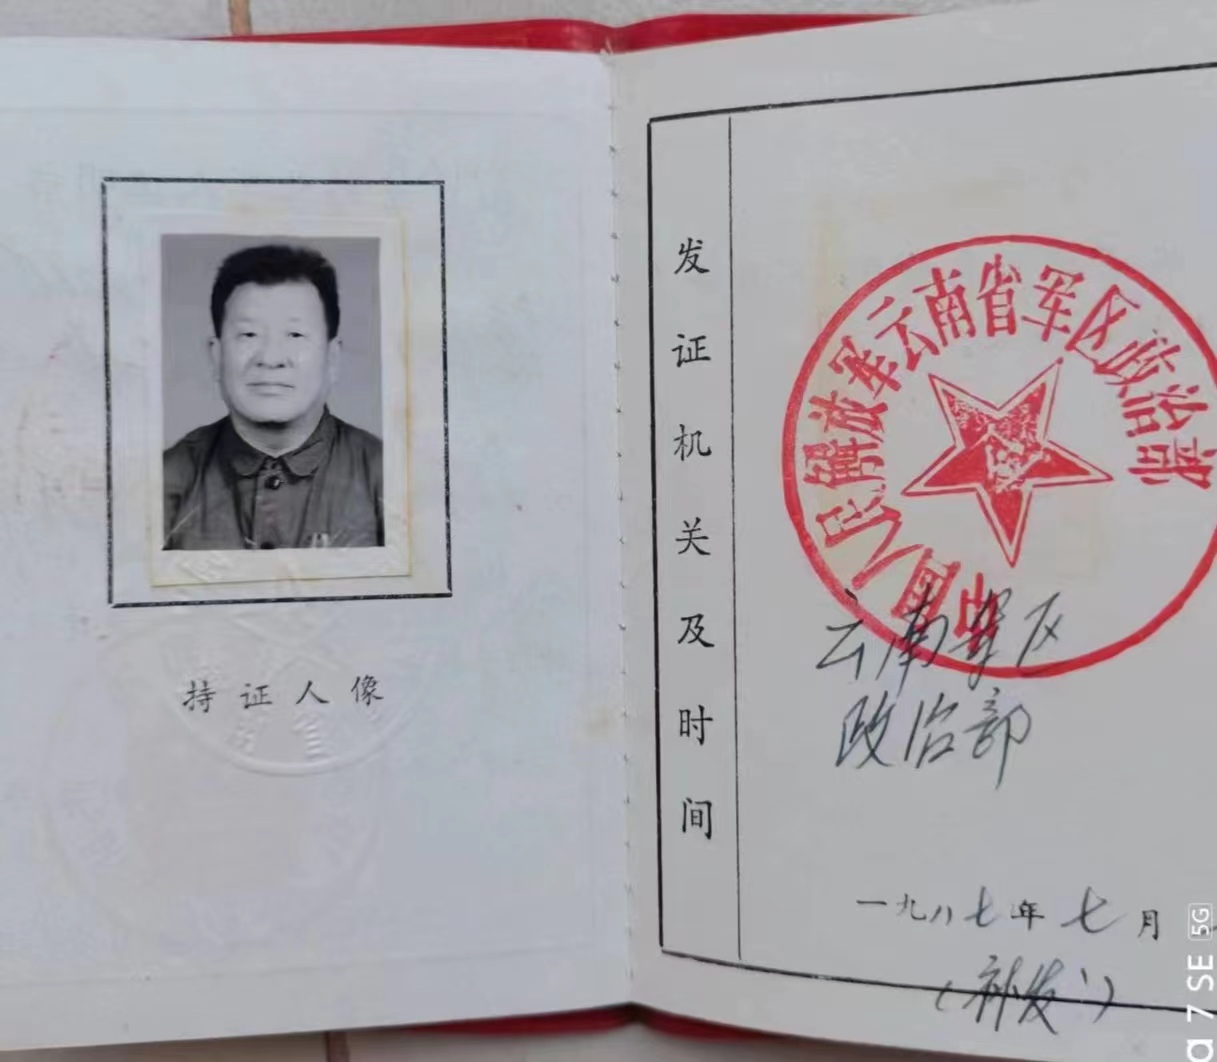 持证人像
发证机关及时间
中国人民解放军云南省军区政治部
云南军区
政治部
一九八七年七月
(补发)
7 SE 5G